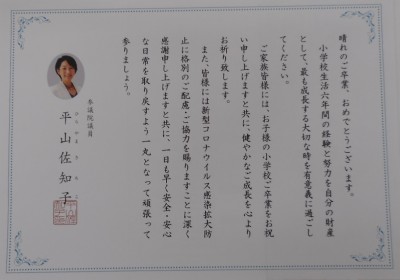 晴れのご卒業、おめでとうございます。
小学校生活六年間の経験と努力を自分の財産
として、最も成長する大切な時を有意義に過ごし
てください。
ご家族皆様には、お子様の小学校ご卒業をお祝
い申し上げますと共に、健やかなご成長を心より
お祈り致します。
また、皆様には新型コロナウイルス感染拡大防
止に格別のご配慮・ご協力を賜りますことに深く
感謝申し上げますと共に、一日も早く安全・安心
な日常を取り戻すよう一丸となって頑張って
参りましょう。
参議院議員
平山佐知子
ひらやまさちこ